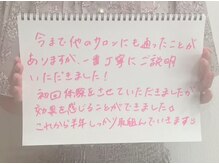 今まで他のサロンにも通ったことが
ありますが、一番丁寧にご説明
いただきました！
初回体験をさせていただきましたが
効果を感じることができました。
これから半年しっかり取組んでいきます